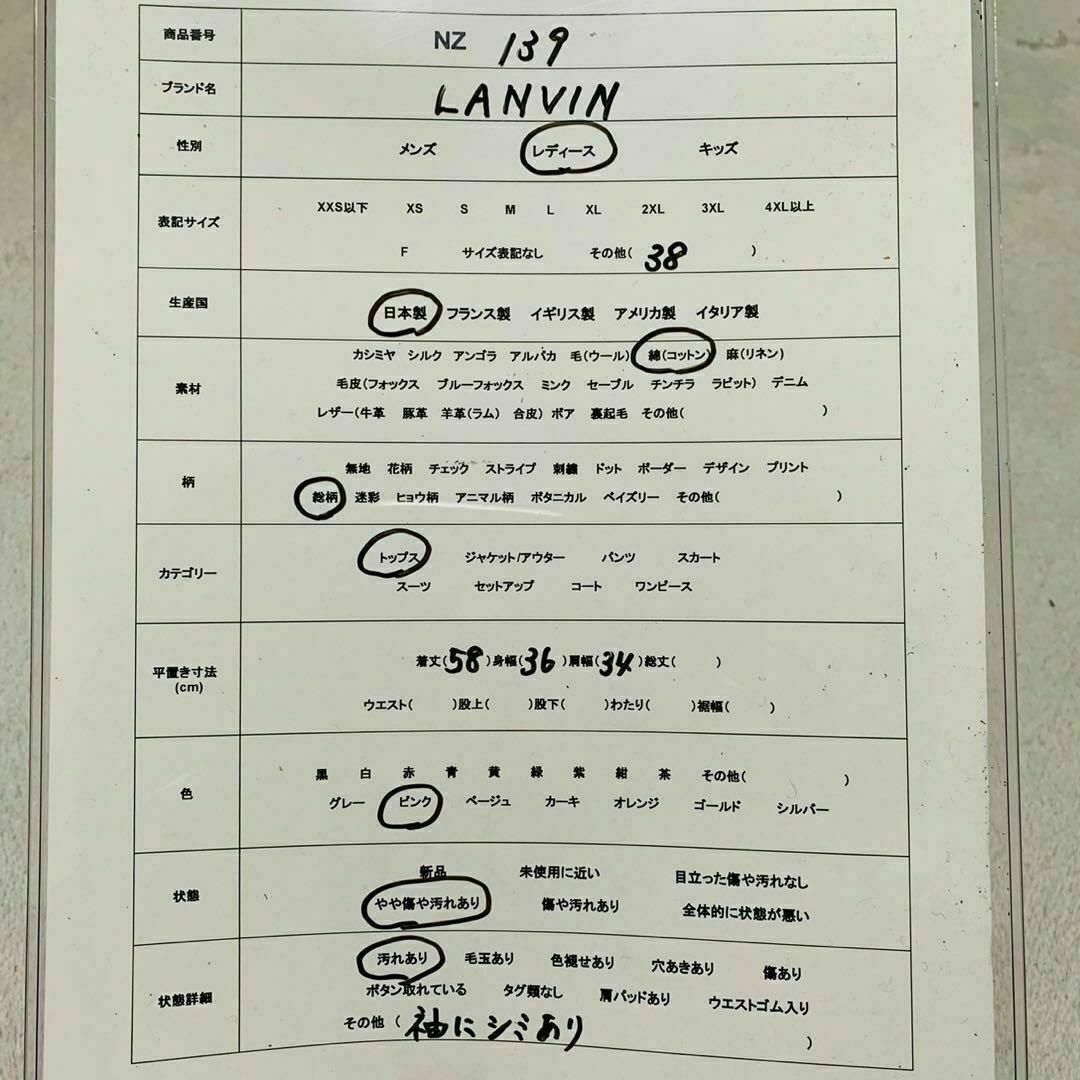 商品番号 NZ 139
ブランド名 LANVIN
性別 メンズ レディース キッズ
XXS以下 XS S M L XL 2XL 3XL 4XL以上
表記サイズ
F サイズ表記なし その他( 38 )
生産国 日本製 フランス製 イギリス製 アメリカ製 イタリア製
カシミヤ シルク アンゴラ アルパカ 毛(ウール) 綿(コットン) 麻(リネン)
素材 毛皮(フォックス ブルーフォックス ミンク セーブル チンチラ ラビット) デニム
レザー(牛革 豚革 羊革(ラム) 合皮) ボア 裏起毛 その他( )
無地 花柄 チェック ストライプ 刺繍 ドット ボーダー デザイン プリント
柄
総柄 迷彩 ヒョウ柄 アニマル柄 ボタニカル ペイズリー その他( )
トップス ジャケット/アウター パンツ スカート
カテゴリー
スーツ セットアップ コート ワンピース
着丈(58)身幅(36)肩幅(34)総丈( )
平置き寸法
(cm)
ウエスト( )股上( )股下( )わたり( )裾幅( )
黒 白 赤 青 黄 緑 紫 紺 茶 その他( )
色
グレー ピンク ベージュ カーキ オレンジ ゴールド シルバー
新品 未使用に近い 目立った傷や汚れなし
状態
やや傷や汚れあり 傷や汚れあり 全体的に状態が悪い
汚れあり 毛玉あり 色褪せあり 穴あきあり 傷あり
状態詳細 ボタン取れている タグ類なし 肩パッドあり ウエストゴム入り
その他 ( 袖にシミあり )